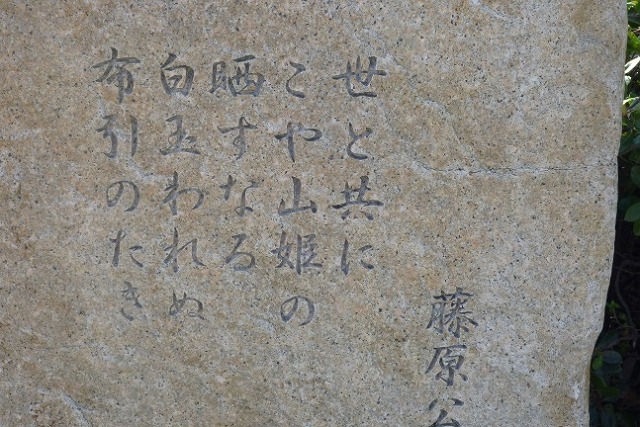 藤原公
世と共に
こや山姫の
晒すなる
白玉われぬ
布引のたき